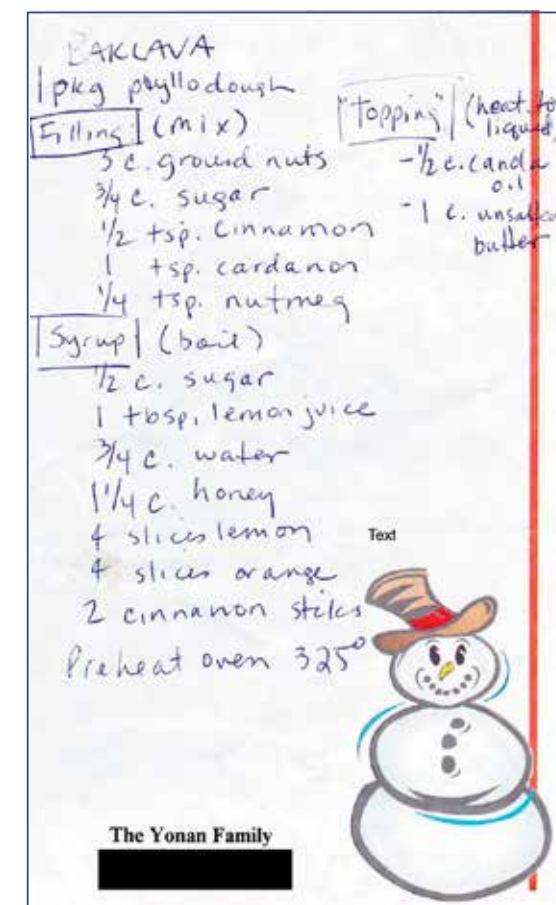 BAKLAVA
1 pkg phyllo dough
Filling (mix)
3 c. ground nuts
3/4 c. sugar
1/2 tsp. cinnamon
1 tsp. cardanon
1/4 tsp. nutmeg
Syrup (boil)
1/2 c. sugar
1 tbsp. lemon juice
3/4 c. water
1 1/4 c. honey
4 slices lemon
4 slices orange
2 cinnanon sticks
Preheat oven 325°
"Topping" (heat to
liquid
- 1/2 c. canola
oil
- 1 c.
butter
Text
The Yonan Family